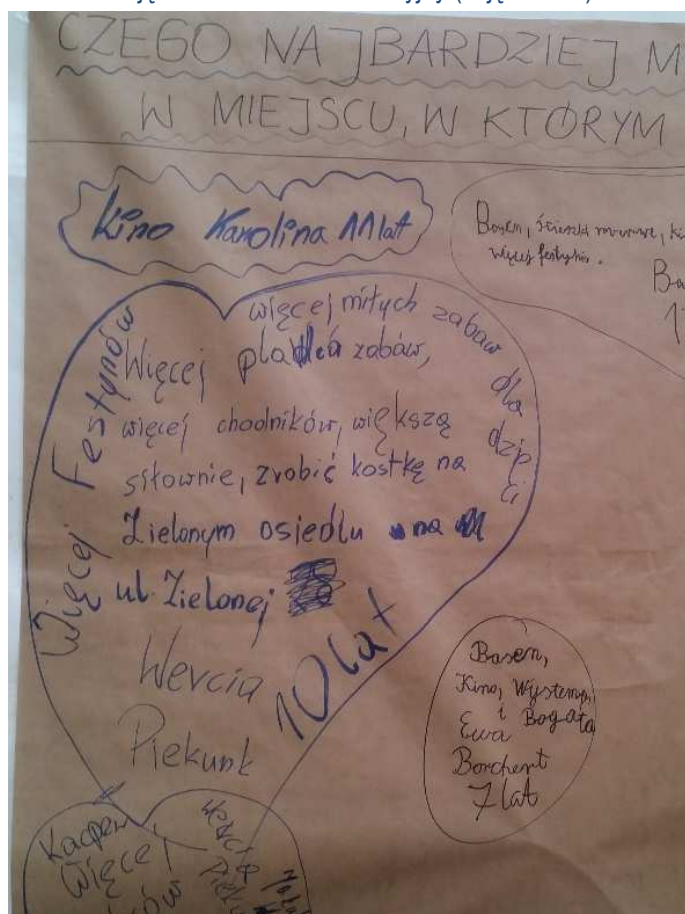 CZEGO NAJBARDZIEJ M
W MIEJSCU, W KTÓRYM
Kino Karolina 11 lat
Basen, ki
więcej festynów.
Ba
1
Więcej Festynów
więcej miłych zabaw dla dzieci
Więcej zabaw,
więcej chodników, większą
siłownie, zrobić kostkę na
Zielonym osiedlu na
ul. Zielonej
Wercia
Piekunt
10 lat
Basen,
Kino, Wystempy
i
Ewa Bogata
Borchert
7 lat
Kacper
Więcej
Wercia
Pieku